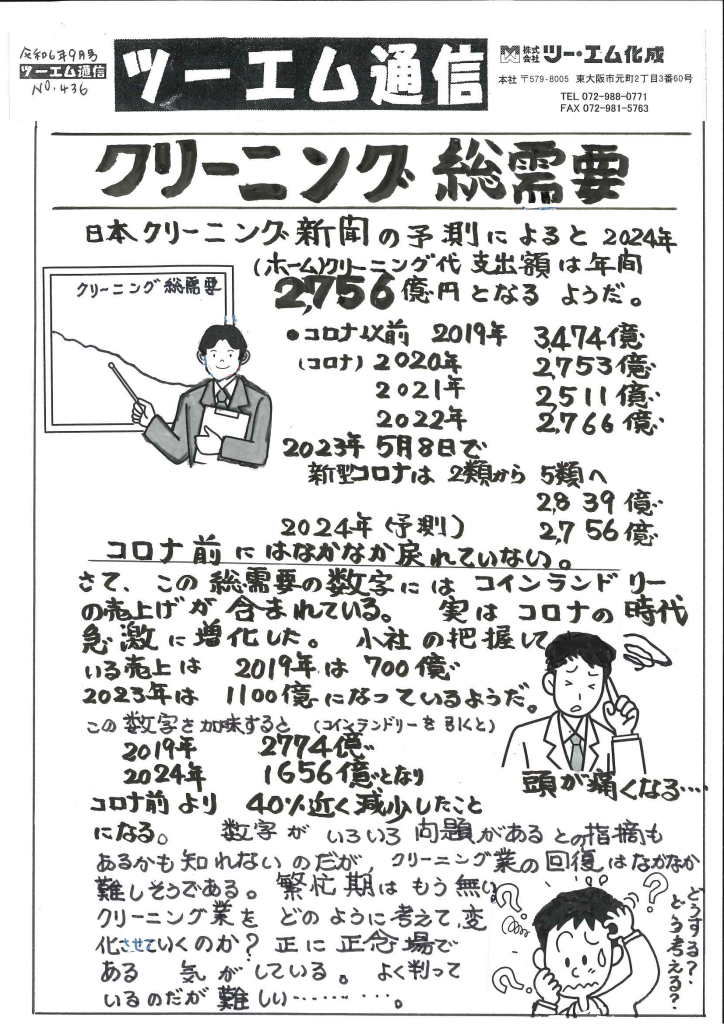 令和6年9月号
ツーエム通信
NO.436
ツーエム通信
株式会社 ツー・エム化成
本社 〒579-8005 東大阪市元町2丁目3番60号
TEL 072-988-0771
FAX 072-981-5763
クリーニング 総需要
日本クリーニング新聞の予測によると 2024年
(ホーム)クリーニング代 支出額は年間
2,756億円となる ようだ。
クリーニング総需要
●コロナ以前 2019年 3,474億
(コロナ) 2020年 2,753億
2021年 2,511億
2022年 2,766億
2023年 5月8日で
新型コロナは 2類から 5類へ
2,839億
2024年(予測) 2,756億
コロナ前にはなかなか戻れていない。
さて、この総需要の数字には コインランドリー
の売上げが含まれている。 実はコロナの時代
急激に増化した。 小社の把握して
いる売上は 2019年は 700億
2023年は 1100億になっているようだ。
この数字を加味すると (コインランドリーを引くと)
2019年 2774億
2024年 1656億となり
頭が痛くなる‥‥
コロナ前より 40%近く減少したこと
になる。 数字が いろいろ問題があるとの指摘も
あるかも知れないのだが、クリーニング業の回復はなかなか
難しそうである。 繁忙期は もう無い。
クリーニング業を どのように考えて、変
化させていくのか? 正に正念場で
ある 気がしている。 よく判って
いるのだが難しい‥‥‥‥‥。
どうする?
どう考える?